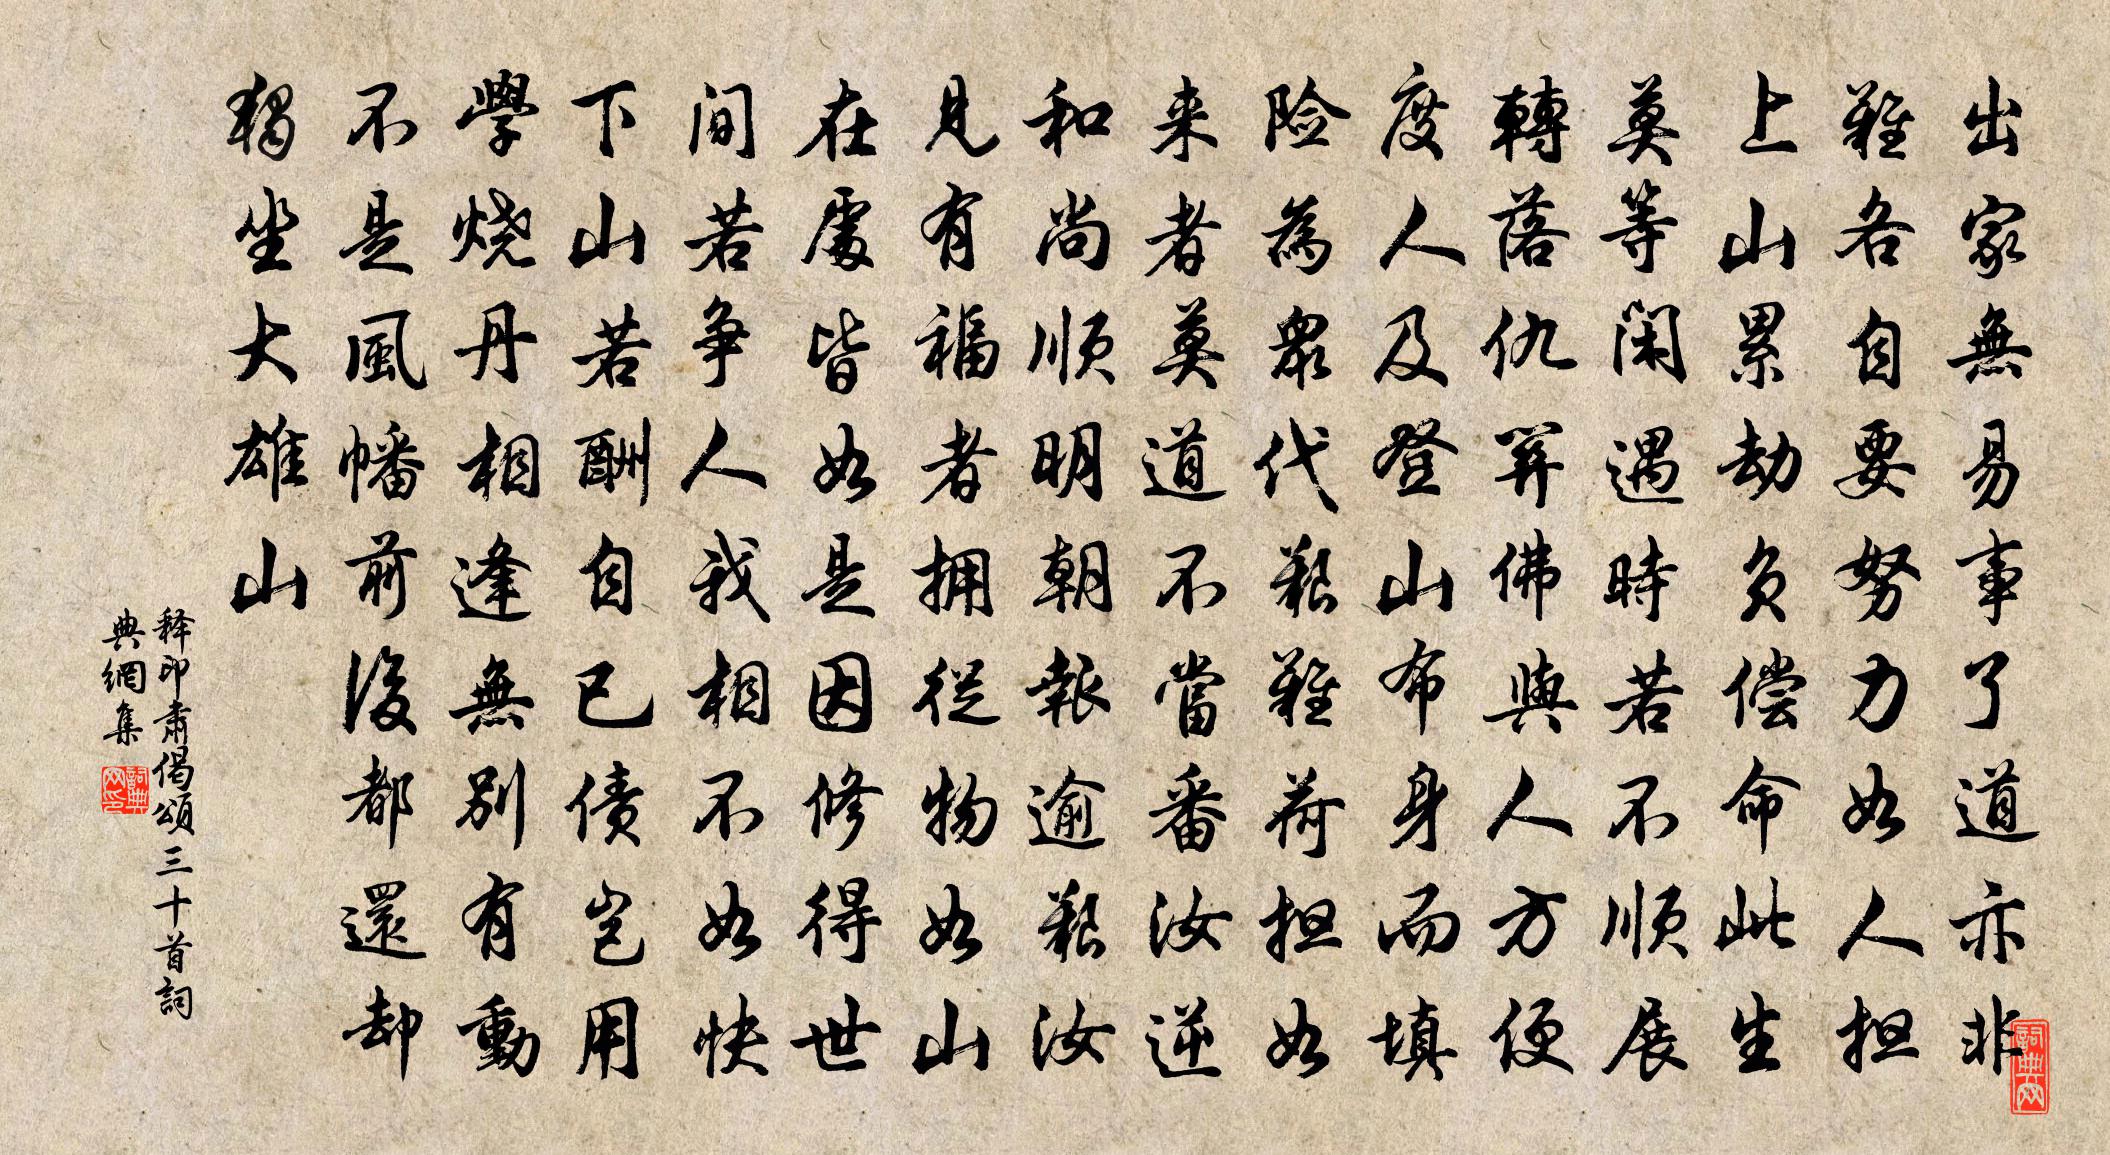 出家無易事了道亦非
難各自要努力如人担
上山累劫负偿命此生
莫等闲遇時若不順展
轉落仇冤佛與人方便
度人及登山布身而填
险為衆代艱難荷担如
来者莫道不當番汝逆
和尚顺明朝報逾艱汝
見有福者拥從物如山
在處皆如是因修得世
间若争人我相不如快
下山若酬自己债岂用
學烧丹相逢無别有動
不是風幡前後都還却
獨坐大雄山
释印肃偈頌三十首詞
典網集
詞典网
詞典网印